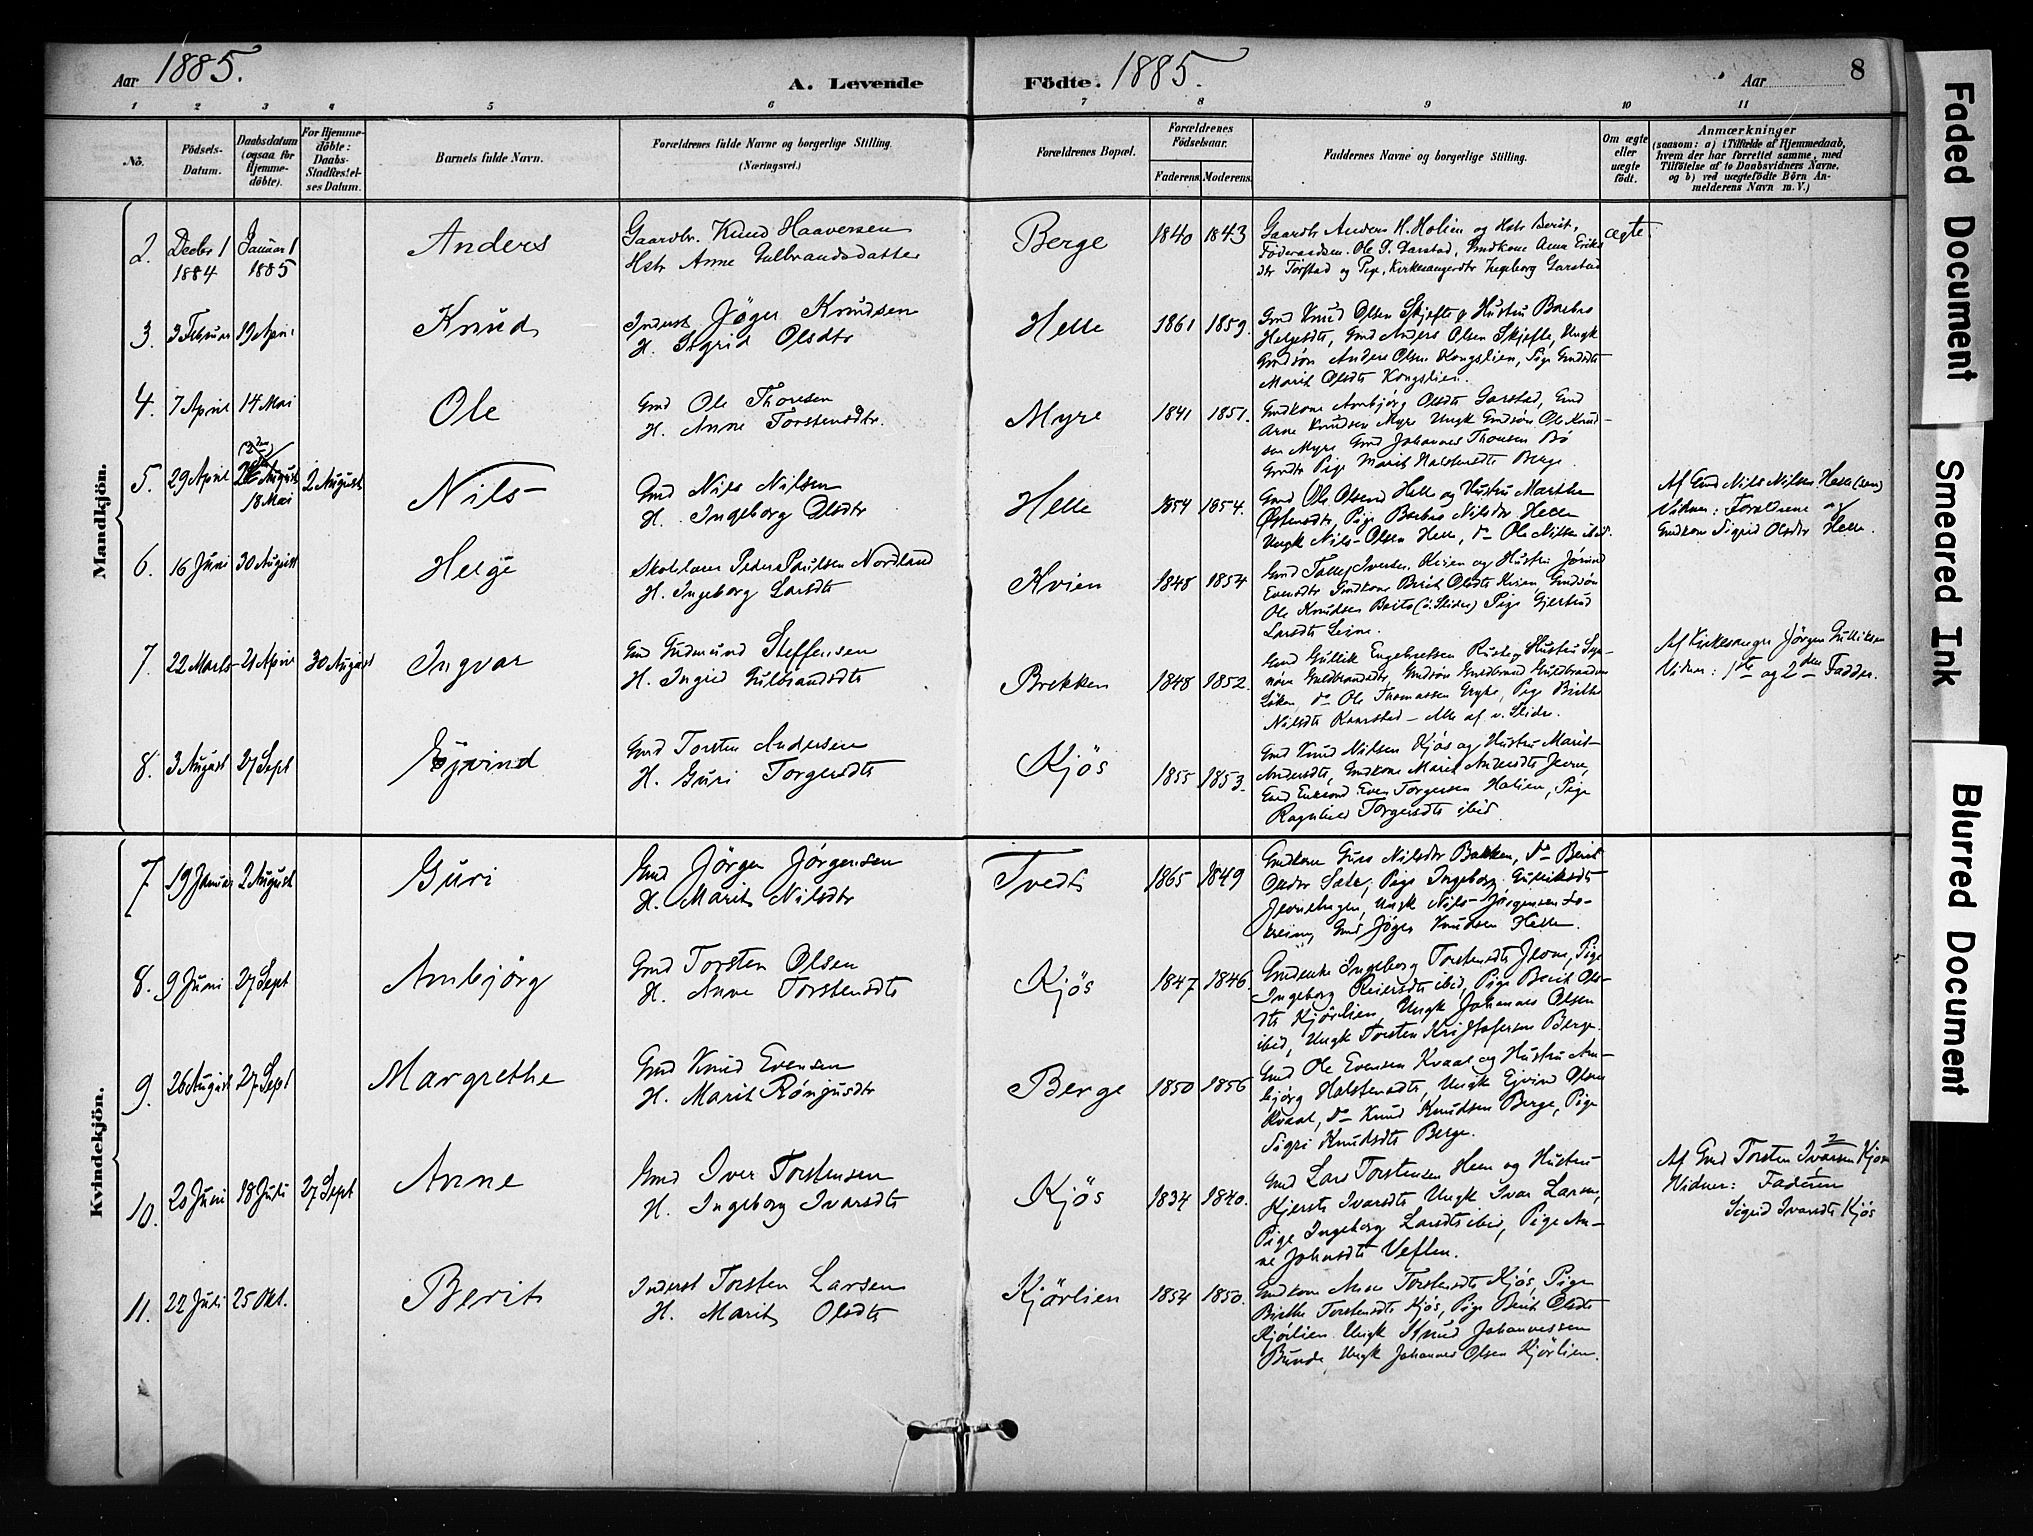 Aar 1885.
A. Levende
Födte. 1885.
Aar
8
1 2 3 4 5 6 7 8 9 10 11
No.
Födsels-Datum.
Daabsdatum (ogsaa for Hjemme-döbte).
For Hjemme-döbte: Daabs-Stadfæstel-ses Datum.
Barnets fulde Navn.
Forældrenes fulde Navne og borgerlige Stilling. (Næringsvei.)
Forældrenes Bopæl.
Forældrenes Födselsaar.
Faderens. Moderens.
Faddernes Navne og borgerlige Stilling.
Om ægte eller uægte födt.
Anmærkninger
(saasom: a) i Tilfælde af Hjemmedaab,
hvem der har forrettet samme, med
Tilföielse af to Daabsvidners Navne,
og b) ved uægtefödte Börn An-
melderens Navn m. V.)
Mandkjön.
2. Decbr 1 1884 Januar 1 1885 Anders
Gaardbr. Knud Haaversen
Hstr Anne Gulbrandsdatter
Berge 1840 1843
Gaardbr Anders H. Holien og Hstr Berit,
Ole Garstad, Gmdkone Anna Eriks
dtr Torstad og Pige, Kirkesangerdtr Ingeborg Garstad
ægte.
3. 3 Februar 19 April Knud
Inderst Jöger Knudsen
H. Sigrid Olsdtr
Helle 1861 1859.
Gmd Knud Olsen Skjefte og Hustru Barbro
Helgesdtr, Gmd Anders Olsen Skjefte, Ungk
Gmdsön Anders Olsen Kongslien, Pige Gmdsdtr
Marit Olsdtr Kongslien.
4. 7 April 14 Mai Ole
Gmd Ole Thoresen
H. Anne Torstensdtr.
Myre 1841 1851.
Gmdkone Ambjörg Olsdtr Garstad, Gmd
Arne Knudsen Myre Ungk Gmdsön Ole Knud-
sen Myre Gmd Johannes Thonsen Bö
Gmdtr Pige Marit Halstensdtr Berge.
5. 29 April 18 Mai 2 August Nils
Gmd Nils Nilsen
H. Ingeborg Olsdtr
Helle 1854 1854.
Gmd Ole Olsen Helle og Hustru Marthe
Östensdtr, Pige Barbro Nilsdtr Helle
Ungk Nils Olsen Helle, do Ole Nilsen ibid.
Af Gmd Nils Nilsen Helle
Vidner: Forældrene og
Gmdkone Sigrid Olsdtr Helle.
6. 16 Juni 30 August Helge
Skolelærer Peder Poulsen Nordland
H. Ingeborg Larsdtr
Kvien 1848 1854
Gmd Iversen Kvien og Hustru Jörand
Evensdtr Gmdkone Berit Olsdtr Kvien, Gmdsön
Ole Knudsen (v. Slidre) Pige Gjertrud
Larsdtr
7. 22 Marts 21 April 30 August Ingvar
Gmd Gudmund Steffensen
H. Ingrid Gulbrandsdtr
Brekken 1848 1852.
Gmd Gullik Engebretsen og Hustru
Guldbrandsdtr, Gmdsön Guldbrand Guldbrandsen
do Ole Thomassen Pige Birthe
Nilsdtr Kaarstad – Alle af v. Slidre.
Af Kirkesanger Jörgen Gulliksen
Vidner: 1ste og 2den Fadder.
8. 3 August 27 Sept Eyvind
Gmd Torsten Andersen
H. Guri Torgersdtr
Kjös 1855 1853.
Gmd Knud Nilsen Kjös og Hustru Marit
Andersdtr, Gmdkone Marit Andersdtr
Gmd Even Torgersen Holien, Pige
Ragnhild Torgersdtr ibid.
Kvindekjön.
7 19 Januar 2 August Guri
Gmd Jörgen Jörgensen
H. Marit Nilsdtr
Tvedt 1865 1849
Gmdkone Guri Nilsdtr Bakken, do Berit
Olsdtr Pige Ingeborg Gulliksdtr
Ungk Nils Jörgensen
Gmd Jöger Knudsen Helle.
8. 9 Juni 27 Sept Ambjörg
Gmd Torsten Olsen
H. Anne Torstensdtr
Kjös 1847 1846.
Ingeborg Torstensdtr Pige
Ingeborg Reiersdtr ibid, Pige Berit Ols-
dtr Kjörlien Ungk Johannes Olsen
ibid, Ungk Torsten Kristofersen Berge.
9. 26 August 27 Sept Margrethe
Gmd Knud Evensen
H. Marit Röngusdtr
Berge 1850 1856
Gmd Ole Evensen Kvaal og Hustru Am-
björg Halstensdtr, Ungk Ejvind Olsen
Kvaal, do Knud Knudsen Berge, Pige
Sigri Knudsdtr Berge.
10. 20 Juni 18 Juli 27 Sept Anne
Gmd Iver Torstensen
H. Ingeborg Ivarsdtr
Kjös 1834 1840.
Gmd Lars Torstensen Heen og Hustru
Kjersti Ivarsdtr Ungk Ivar Larsen,
Pige Ingeborg Larsdtr ibid, Pige An-
ne Johnsdtr Veflen.
Af Gmd Torsten Ivarsen Kjös
Vidner: Faderen
Sigrid Ivarsdtr Kjös
11. 22 Juli 25 Okt. Berit
Inderst Torsten Larsen
H. Marit Olsdtr
Kjörlien 1854 1850.
Gmdkone Anne Torstensdtr Kjös, Pige
Birthe Torstensdtr Kjös, Pige Berit Olsdtr
Kjörlien Ungk Knud Johannessen
Bunde, Ungk Johannes Olsen Kjörlien.
Faded Document
Smeared Ink
Blurred Document